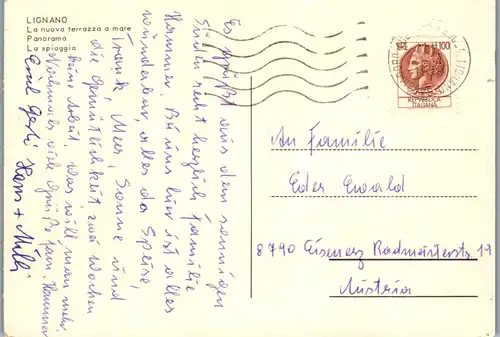 LIGNANO
La nuova terrazza a mare
Panorama
La spiaggia
Es grüßt aus dem sonnigen
Süden recht herzlich Familie
Hammer. Bei uns hier ist alles
wunderbar, alles da Speise,
Trank, Meer Sonne und
die Gemütlichkeit, zwei Wochen
keine Arbeit, was will man mehr.
Nochmals viele Grüße Fam. Hammer
Hans + Milli
L. 100
REPUBBLICA
ITALIANA
An Familie
Eder Ewald
8790 Eisenerz Radmeisterstr. 19
Austria